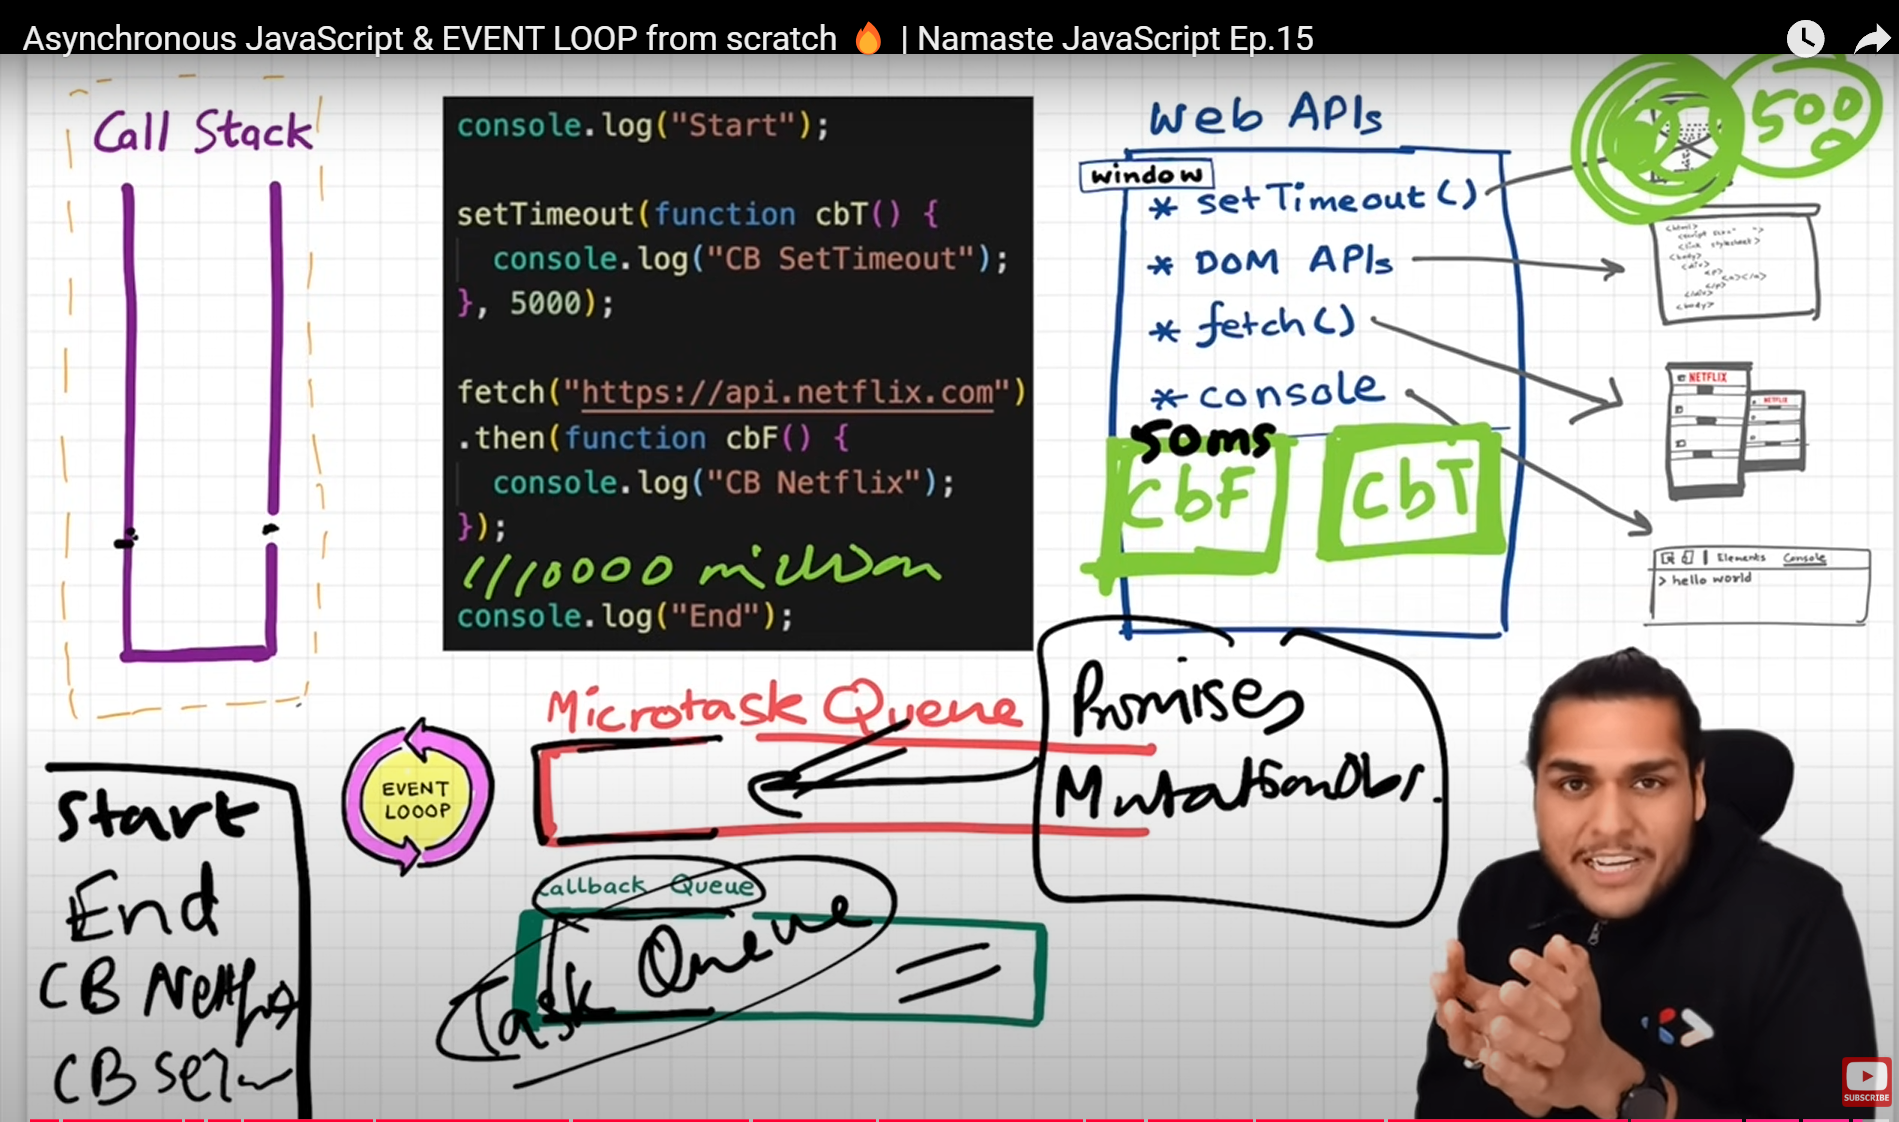 Asynchronous JavaScript & EVENT LOOP from scratch 🔥 | Namaste JavaScript Ep.15
Call Stack
console.log("Start");
setTimeout(function cbT() {
console.log("CB SetTimeout");
}, 5000);
fetch("https://api.netflix.com")
.then(function cbF() {
console.log("CB Netflix");
});
///10000 million
console.log("End");
Web APIs
window
* setTimeout()
* DOM APIs
* fetch()
* console
50ms
CbF
CbT
500
0
<html>
<body>
<div>
</div>
<body>
NETFLIX
NETFLIX
Elements Console
> hello world
Microtask Queue
Promises
MutationObs.
EVENT
LOOOP
Callback Queue
Task Queue
Start
End
CB Netflix
SUBSCRIBE